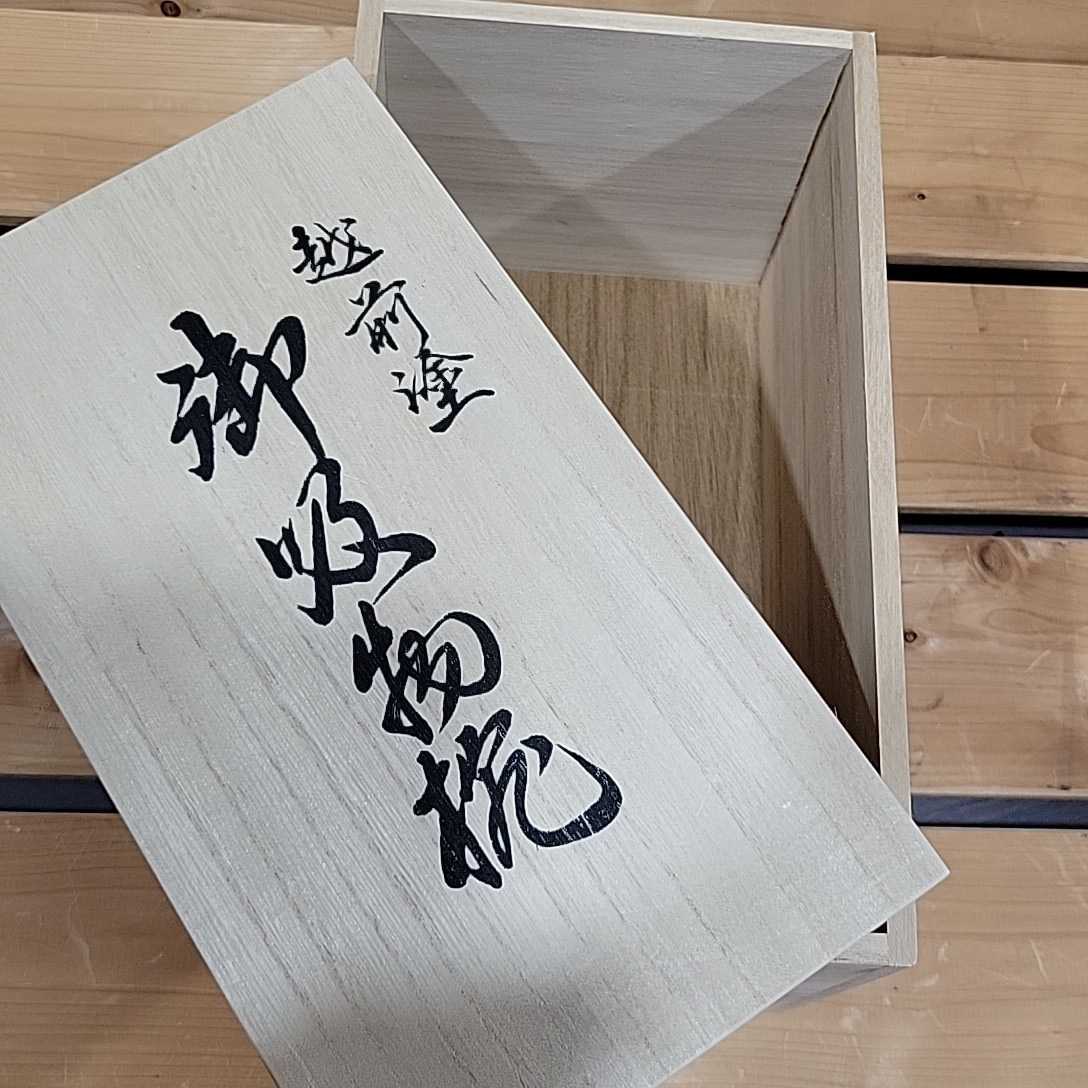 越前塗
御吸物椀